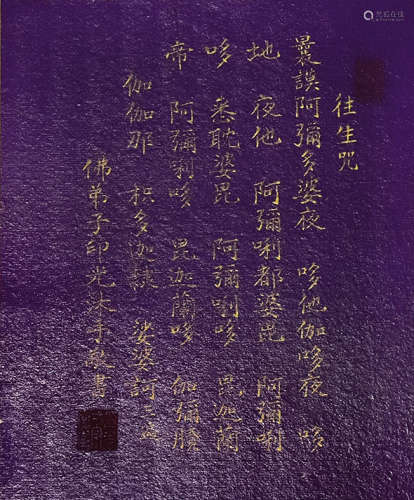 往生咒
曩謨阿彌多婆夜　哆他伽哆夜　哆
地　夜他　阿彌唎都婆毘　阿彌唎
哆　悉耽婆毘　阿彌唎哆　毘迦蘭
帝　阿彌唎哆　毘迦蘭哆　伽彌膩
伽伽那　枳多迦隸　娑婆訶
佛弟子印光沐手敬書